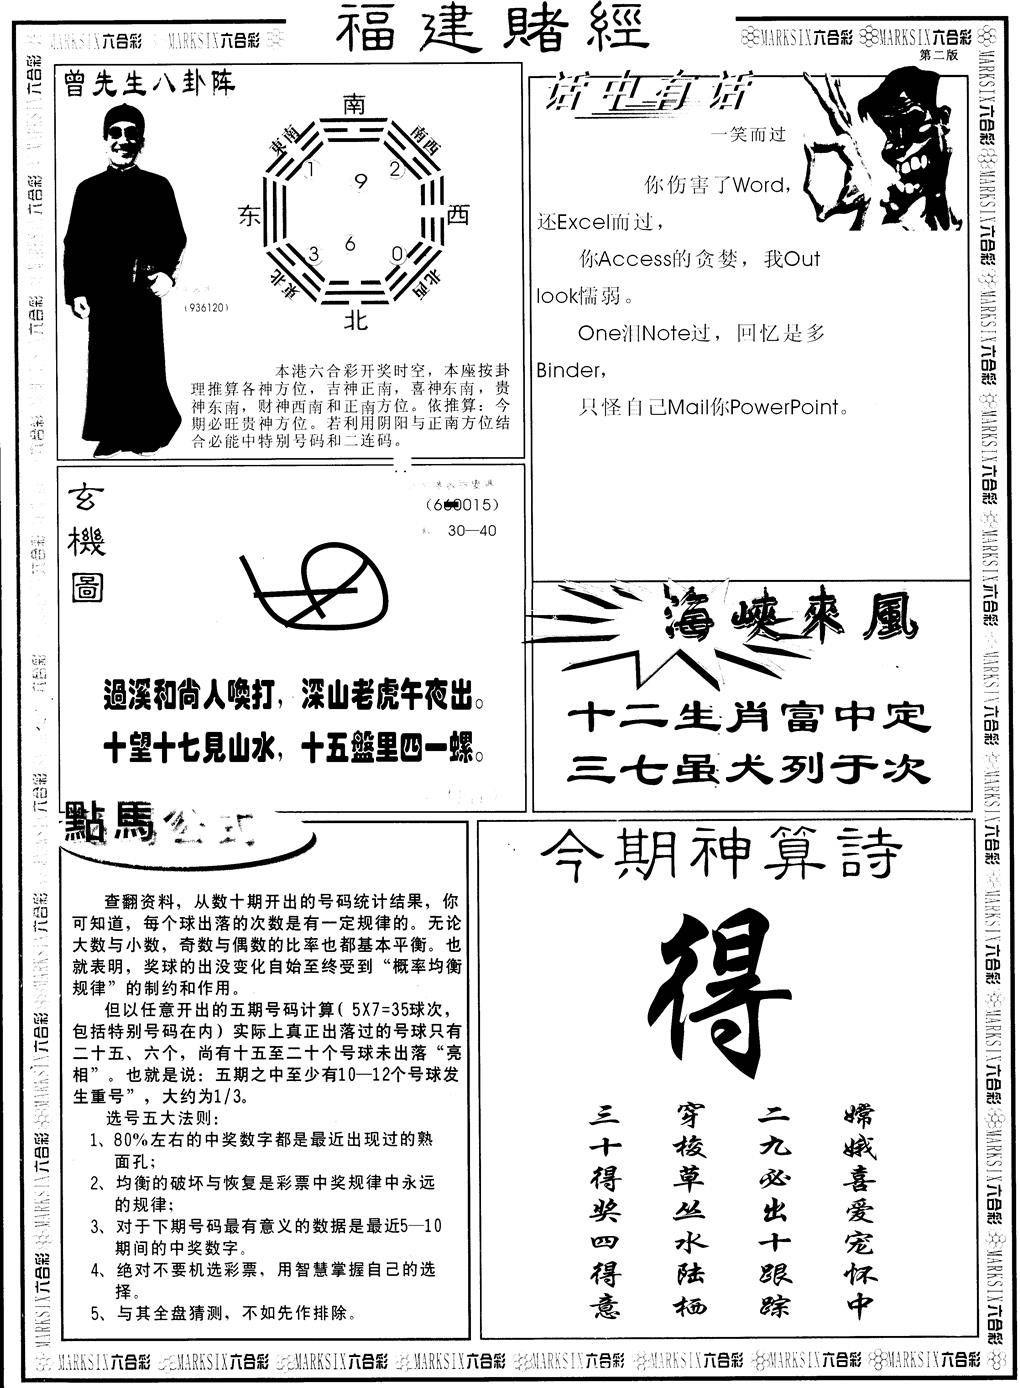 福建賭經
MARKSIX六合彩 MARKSIX六合彩
MARKSIX六合彩 MARKSIX六合彩
第二版
曾先生八卦阵
南
東南
南西
1
9
2
东
西
3
6
0
東北
北西
北
(936120)
本港六合彩开奖时空，本座按卦
理推算各神方位，吉神正南，喜神东南，贵
神东南，财神西南和正南方位。依推算：今
期必旺贵神方位。若利用阴阳与正南方位结
合必能中特别号码和二连码。
话中有话
一笑而过
你伤害了Word，
还Excel而过，
你Access的贪婪，我Out
look懦弱。
One泪Note过，回忆是多
Binder，
只怪自己Mail你PowerPoint。
玄機圖
30—40
過溪和尚人喚打，深山老虎午夜出。
十望十七見山水，十五盤里四一螺。
海峽來風
十二生肖富中定
三七虽犬列于次
點馬公式
查翻资料，从数十期开出的号码统计结果，你
可知道，每个球出落的次数是有一定规律的。无论
大数与小数，奇数与偶数的比率也都基本平衡。也
就表明，奖球的出没变化自始至终受到“概率均衡
规律”的制约和作用。
但以任意开出的五期号码计算( 5X7=35球次，
包括特别号码在内）实际上真正出落过的号球只有
二十五、六个，尚有十五至二十个号球未出落“亮
相”。也就是说：五期之中至少有10—12个号球发
生重号”，大约为1/3。
选号五大法则：
1、80%左右的中奖数字都是最近出现过的熟
面孔；
2、均衡的破坏与恢复是彩票中奖规律中永远
的规律；
3、对于下期号码最有意义的数据是最近5—10
期间的中奖数字。
4、绝对不要机选彩票，用智慧掌握自己的选
择。
5、与其全盘猜测，不如先作排除。
今期神算詩
得
嫦娥喜爱宠怀中
二九必出十跟踪
穿梭草丛水陆栖
三十得奖四得意
MARKSIX六合彩 MARKSIX六合彩 MARKSIX六合彩 MARKSIX六合彩 MARKSIX六合彩 MARKSIX六合彩 MARKSIX六合彩 MARKSIX六合彩